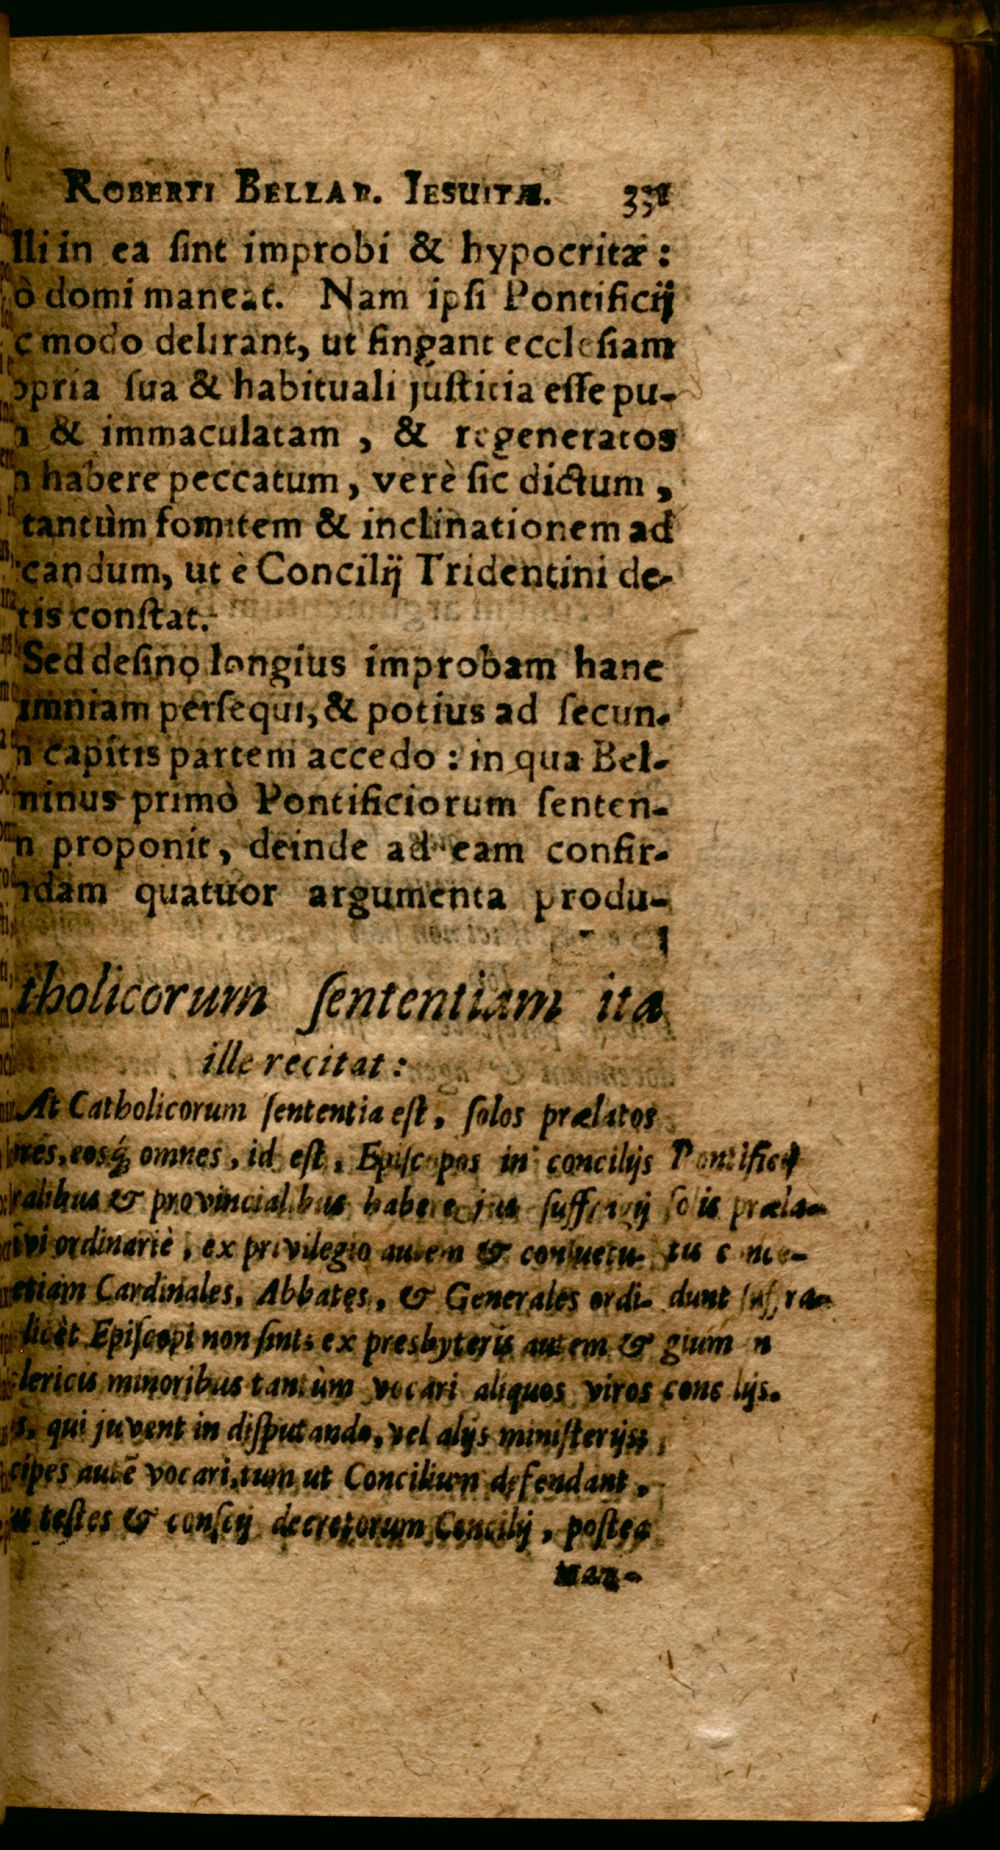 ROBERTI BELLAR. IESUITÆ. 331
lli in ea ſint improbi & hypocritæ:
ò domi maneat. Nam ipſi Pontificij
c modo delirant, ut fingant eccleſiam
opria ſua & habituali juſticia eſſe pu-
& immaculatam, & regeneratos
n habere peccatum, verè ſic dictum,
tantùm fomitem & inclinationem ad
candum, ut è Concilij Tridentini de-
tis conſtat.
Sed deſino longius improbam hanc
imniam perſequi, & potius ad ſecun-
n capitis partem accedo: in qua Bel-
minus primò Pontificiorum ſenten-
n proponit, deinde ad eam confir-
ndam quatuor argumenta produ-
tholicorum ſententiam ita
ille recitat:
At Catholicorum ſententia eſt, ſolos prælatos
res, eosq́; omnes, id eſt, Epiſcopos in concilijs
ralibus & provincialibus habere jus ſuffragij
ivi ordinariè, ex privilegio autem & conſuetu-
etiam Cardinales, Abbates, & Generales ordi-
licèt Epiſcopi non ſint: ex presbyteris autem &
lericis minoribus tantùm vocari aliquos viros
s, qui juvent in diſputando, vel alijs miniſterijs;
cipes autē vocari, tum ut Concilium defendant,
ut teſtes & conſcij decretorum Concilij, poſtea
man-
Pontificij
ſolis præla-
tis conce-
dunt ſuffra-
gium in
concilijs.